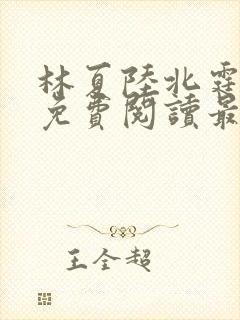 林夏陸北霆
免費閱讀最
王全超